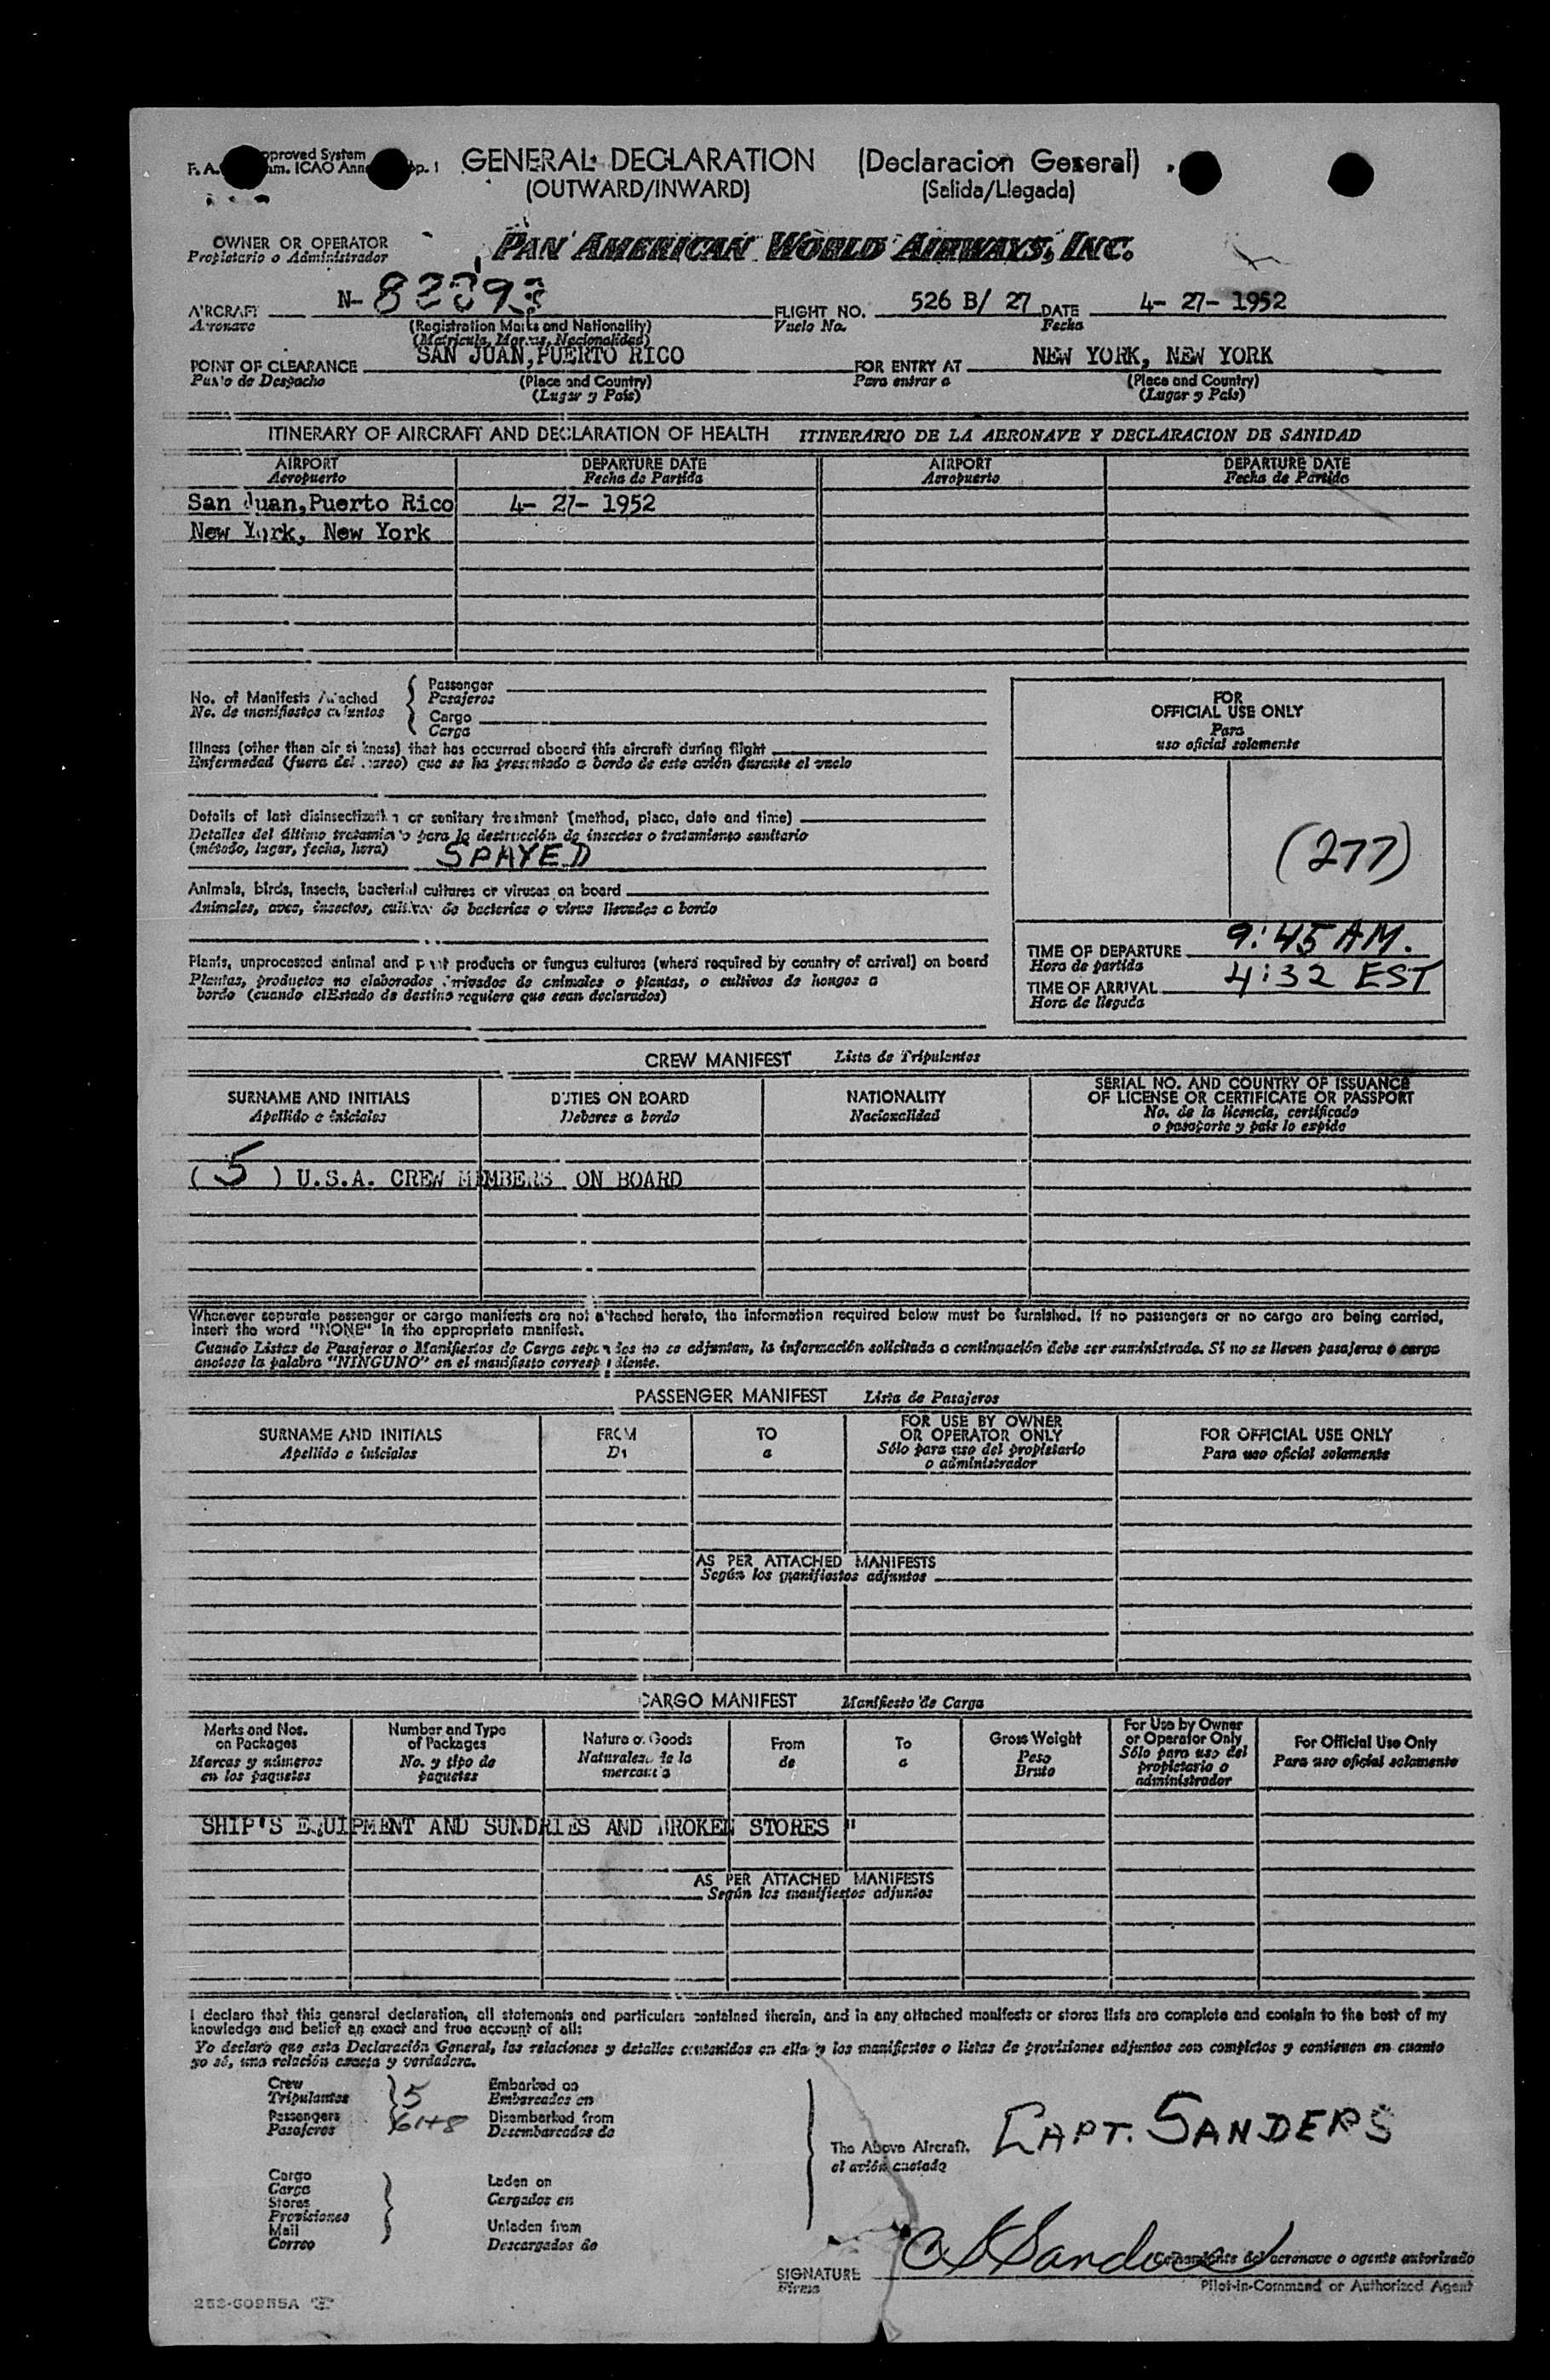 GENERAL DECLARATION (Declaracion General)
(OUTWARD/INWARD) (Salida/Llegada)
OWNER OR OPERATOR
Propietario o Administrador
PAN AMERICAN WORLD AIRWAYS, INC.
AIRCRAFT N-
Aeronave
(Registration Marks and Nationality)
(Matricula, Marcas, Nacionalidad)
FLIGHT NO. 526 B/ 27 DATE 4- 27- 1952
Vuelo No. Fecha
POINT OF CLEARANCE SAN JUAN,PUERTO RICO FOR ENTRY AT NEW YORK, NEW YORK
Punto de Despacho (Place and Country) Para entrar a (Place and Country)
(Lugar y País) (Lugar y País)
ITINERARY OF AIRCRAFT AND DECLARATION OF HEALTH ITINERARIO DE LA AERONAVE Y DECLARACION DE SANIDAD
AIRPORT DEPARTURE DATE AIRPORT DEPARTURE DATE
Aeropuerto Fecha de Partida Aeropuerto Fecha de Partida
San Juan,Puerto Rico 4- 27- 1952
New York, New York
No. of Manifests Attached { Passenger
No. de manifiestos adjuntos Pasajeros
Cargo
Carga
Illness (other than air sickness) that has occurred aboard this aircraft during flight
Enfermedad (fuera del mareo) que se ha presentado a bordo de este avión durante el vuelo
Details of last disinsectization or sanitary treatment (method, place, date and time)
Detalles del último tratamiento para la destrucción de insectos o tratamiento sanitario
(método, lugar, fecha, hora) SPAYED
Animals, birds, insects, bacterial cultures or viruses on board
Animales, aves, insectos, cultivos de bacterias o virus llevados a bordo
Plants, unprocessed animal and plant products or fungus cultures (where required by country of arrival) on board
Plantas, productos no elaborados derivados de animales o plantas, o cultivos de hongos a
bordo (cuando elEstado de destino requiere que sean declarados)
FOR
OFFICIAL USE ONLY
Para
uso oficial solamente
(277)
TIME OF DEPARTURE 9:45 AM.
Hora de partida
TIME OF ARRIVAL 4:32 EST
Hora de llegada
CREW MANIFEST Lista de Tripulantes
SURNAME AND INITIALS DUTIES ON BOARD NATIONALITY SERIAL NO. AND COUNTRY OF ISSUANCE
OF LICENSE OR CERTIFICATE OR PASSPORT
Apellido e iniciales Deberes a bordo Nacionalidad No. de la licencia, certificado
o pasaporte y país lo expide
( 5 ) U.S.A. CREW MEMBERS ON BOARD
Whenever separate passenger or cargo manifests are not attached hereto, the information required below must be furnished. If no passengers or no cargo are being carried,
insert the word "NONE" in the appropriate manifest.
Cuando Listas de Pasajeros o Manifiestos de Carga separados no se adjuntan, la información solicitada a continuación debe ser suministrada. Si no se lleven pasajeros o carga
anotese la palabra "NINGUNO" en el manifiesto correspondiente.
PASSENGER MANIFEST Lista de Pasajeros
SURNAME AND INITIALS FROM TO FOR USE BY OWNER FOR OFFICIAL USE ONLY
OR OPERATOR ONLY
Apellido e iniciales De a Sólo para uso del propietario Para uso oficial solamente
o administrador
AS PER ATTACHED MANIFESTS
Según los manifiestos adjuntos
CARGO MANIFEST Manifiesto de Carga
Marks and Nos. Number and Type Nature of Goods From To Gross Weight For Use by Owner For Official Use Only
on Packages of Packages or Operator Only
Marcas y números No. y tipo de Naturaleza de la de a Peso Sólo para uso del Para uso oficial solamente
en los paquetes paquetes mercancía Bruto propietario o
administrador
SHIP'S EQUIPMENT AND SUNDRIES AND BROKEN STORES "
AS PER ATTACHED MANIFESTS
Según los manifiestos adjuntos
I declare that this general declaration, all statements and particulars contained therein, and in any attached manifests or stores lists are complete and contain to the best of my
knowledge and belief an exact and true account of all:
Yo declaro que esta Declaración General, las relaciones y detalles contenidos en ella y los manifiestos o listas de provisiones adjuntos son completos y contienen en cuanto
yo sé, una relación exacta y verdadera.
Crew } 5 Embarked on
Tripulantes Embarcados en
Passengers Disembarked from
Pasajeros Desembarcados de
The Above Aircraft. CAPT. SANDERS
el avión citado
Cargo Laden on
Carga Cargados en
Stores
Provisiones
Mail Unladen from
Correo Descargados de
SIGNATURE
Firma
Comandante de aeronave o agente autorizado
Pilot-in-Command or Authorized Agent